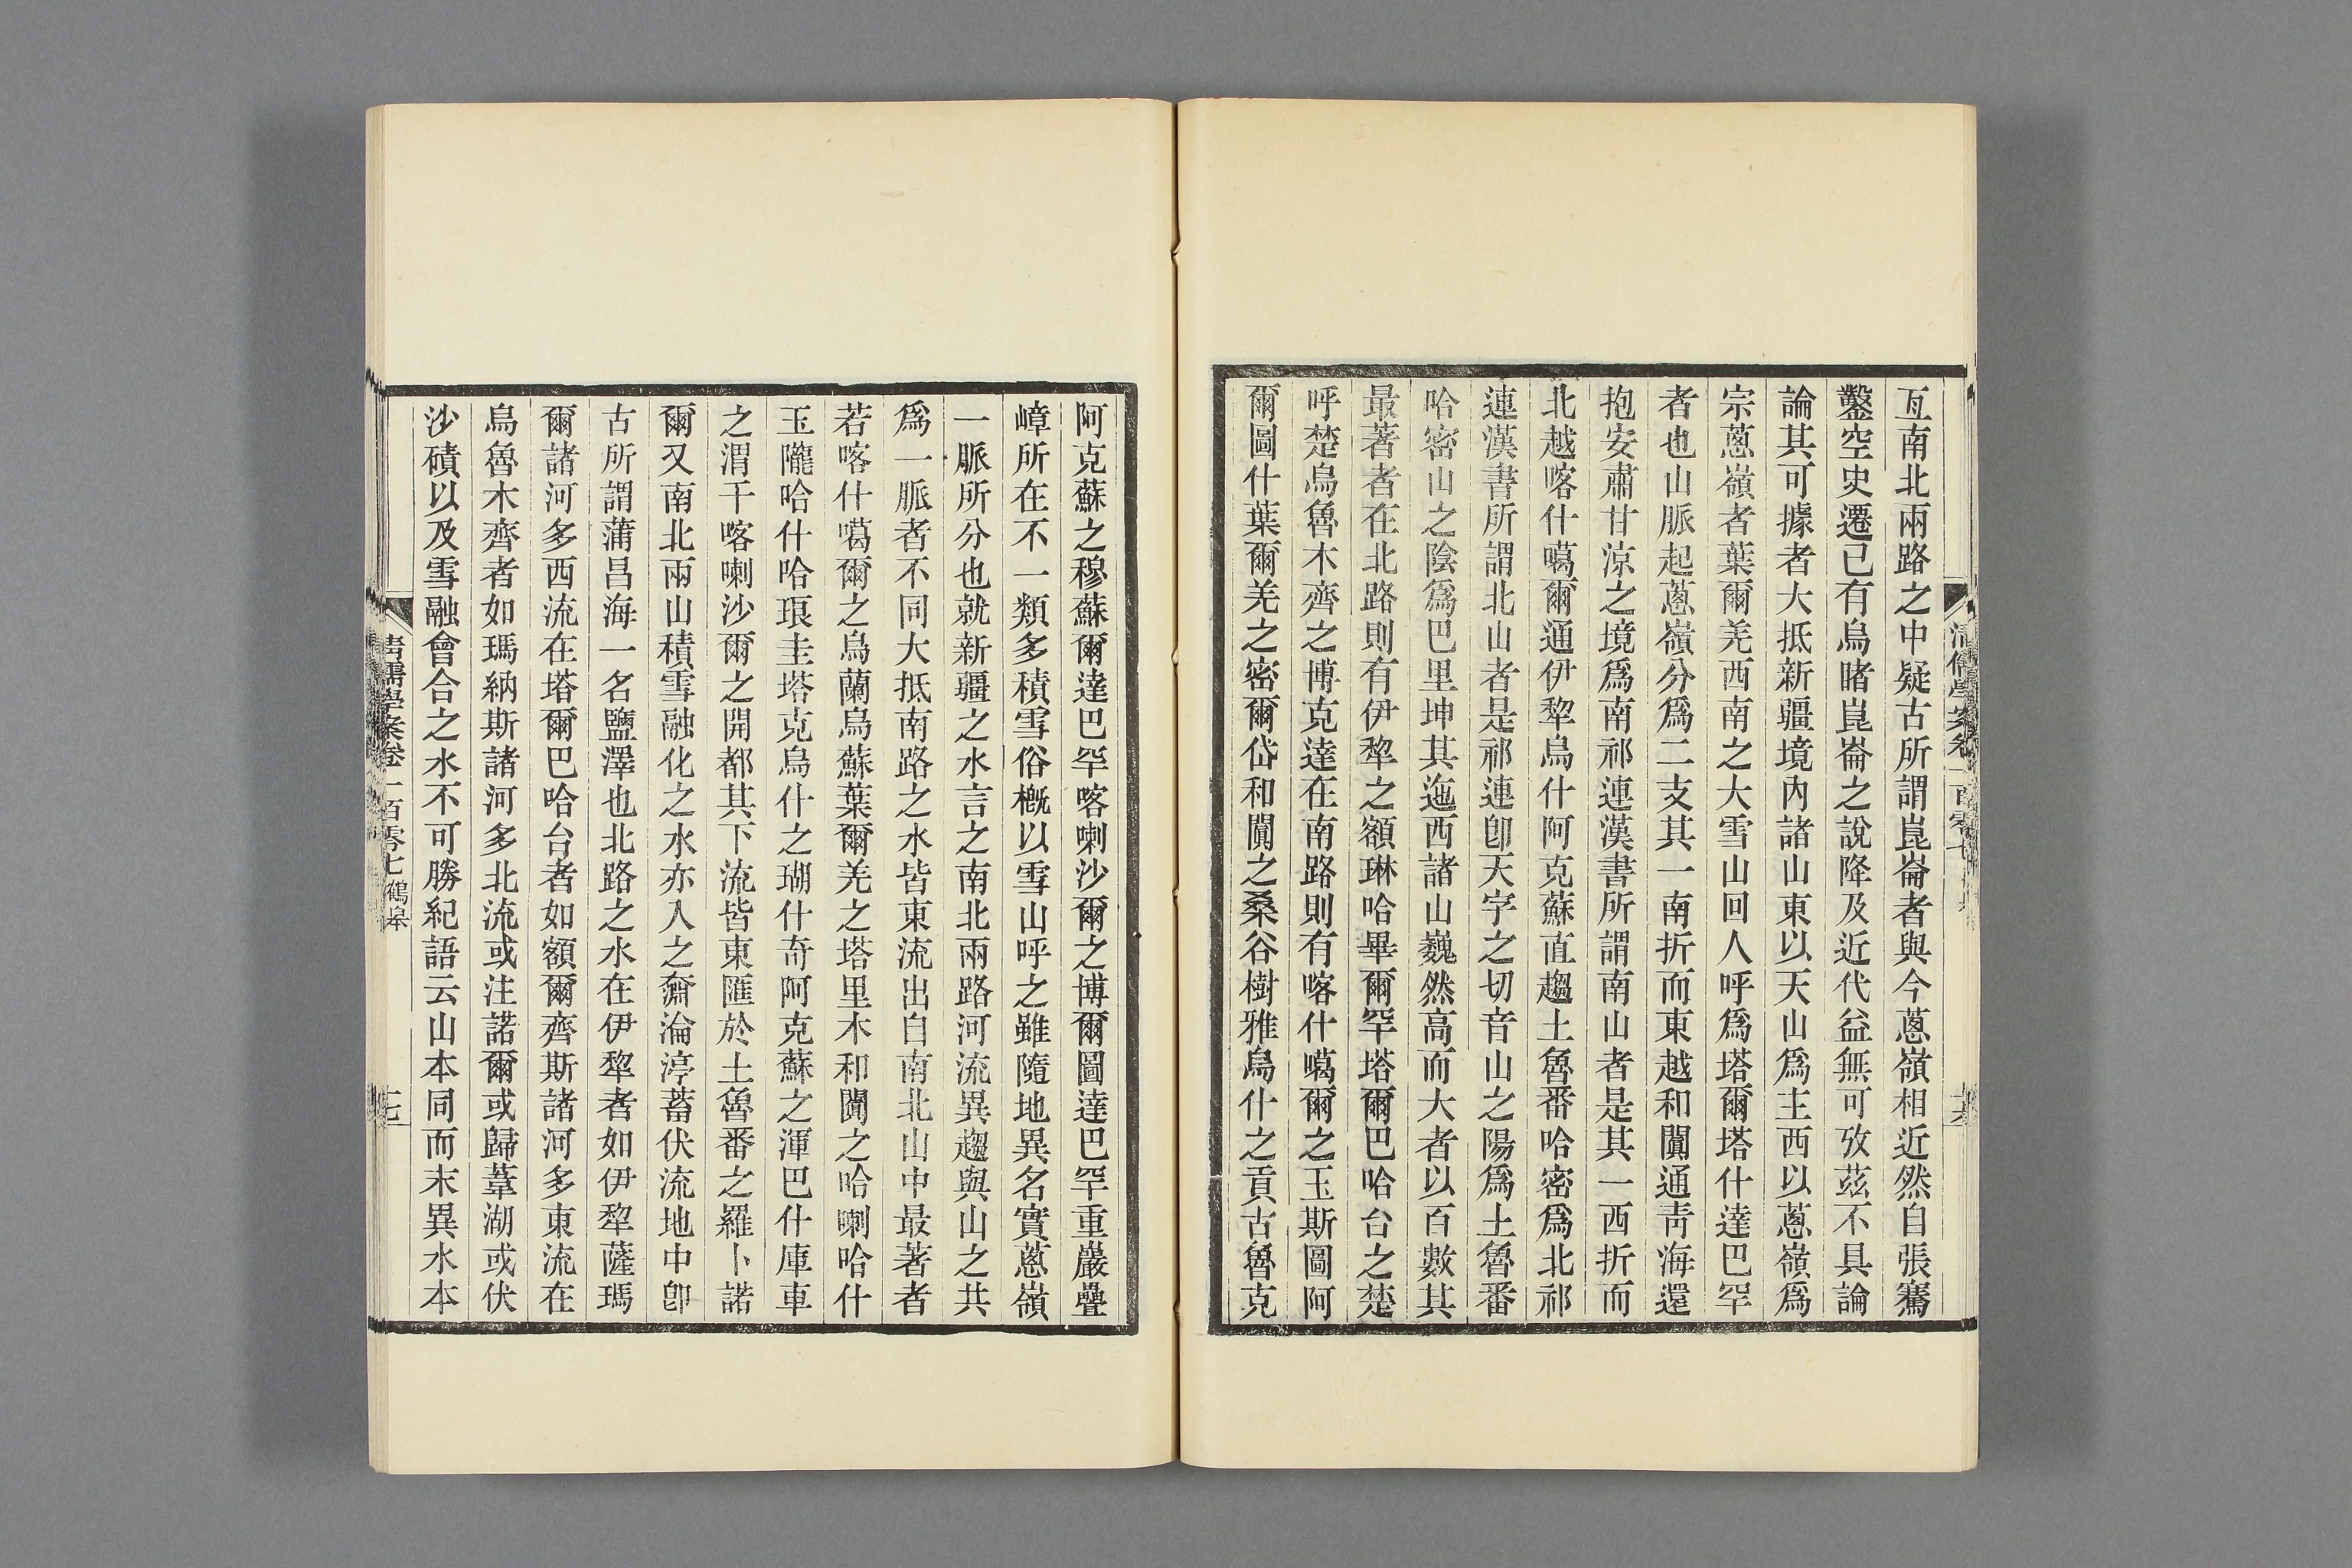 亙南北兩路之中疑古所謂崑崙者與今蔥嶺相近然自張騫
鑿空史遷已有烏睹崑崙之說降及近代益無可攷茲不具論
論其可據者大抵新疆境內諸山東以天山爲主西以蔥嶺爲
宗蔥嶺者葉爾羌西南之大雪山回人呼爲塔爾塔什達巴罕
者也山脈起蔥嶺分爲二支其一南折而東越和闐通青海還
抱安肅甘涼之境爲南祁連漢書所謂南山者是其一西折而
北越喀什噶爾通伊犂烏什阿克蘇直趨土魯番哈密爲北祁
連漢書所謂北山者是祁連卽天字之切音山之陽爲土魯番
哈密山之陰爲巴里坤其迤西諸山巍然高而大者以百數其
最著者在北路則有伊犂之額琳哈畢爾罕塔爾巴哈台之楚
呼楚烏魯木齊之博克達在南路則有喀什噶爾之玉斯圖阿
爾圖什葉爾羌之密爾岱和闐之桑谷樹雅烏什之貢古魯克
阿克蘇之穆蘇爾達巴罕喀喇沙爾之博爾圖達巴罕重巖疊
嶂所在不一類多積雪俗槪以雪山呼之雖隨地異名實蔥嶺
一脈所分也就新疆之水言之南北兩路河流異趨與山之共
爲一脈者不同大抵南路之水皆東流出自南北山中最著者
若喀什噶爾之烏蘭烏蘇葉爾羌之塔里木和闐之哈喇哈什
玉隴哈什哈琅圭塔克烏什之瑚什奇阿克蘇之渾巴什庫車
之渭干喀喇沙爾之開都其下流皆東匯於土魯番之羅卜諾
爾又南北兩山積雪融化之水亦入之奫淪渟蓄伏流地中卽
古所謂蒲昌海一名鹽澤也北路之水在伊犂者如伊犂薩瑪
爾諸河多西流在塔爾巴哈台者如額爾齊斯諸河多東流在
烏魯木齊者如瑪納斯諸河多北流或注諾爾或歸葦湖或伏
沙磧以及雪融會合之水不可勝紀語云山本同而末異水本
清儒學案卷一百零七 鶴皋